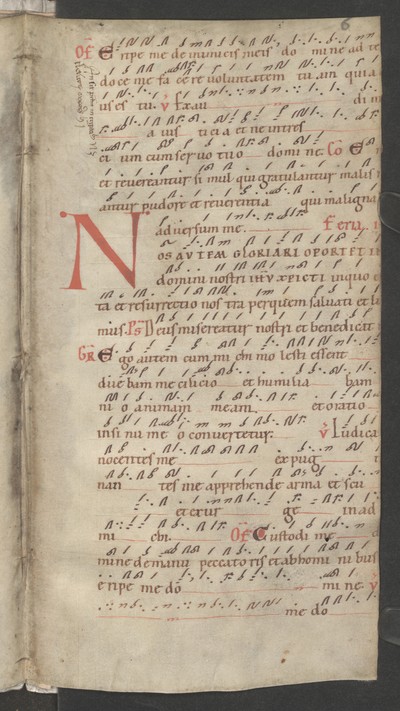 6
Of Eripe me de inimicis meis domine ad te
doce me facere voluntatem tuam quia
us es tu. V Exau di m
a ius ticia et ne intres
ci um cum servo tuo domine. Co E
et revereantur simul qui gratulantur malis
antur pudore et reverentia qui maligna
adversum me. Feria
NOS AUTEM GLORIARI OPORTET I
domini nostri ihu xpicti in quo e
ta et resurrectio nostra per quem salvati et l
mus. Ps Deus misereatur nostri et benedicat
GR Ego autem cum mi chi molesti essent
duebam me cilicio et humilia bam
ni o animam meam. et oratio
in sinu me o convertetur. V Iudica
nocentes me expug
nan tes me apprehende arma et scu
et exur ge in ad
mi chi. Of Custodi me
mine de manu peccatoris et ab homi nibus
eripe me do mi ne V
me do